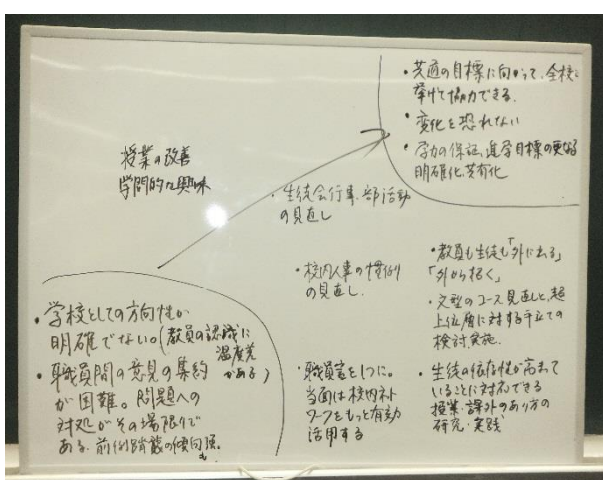 ・共通の目標に向かって、全校を
挙げて協力できる。
・変化を恐れない
・学力の保証、進学目標の更なる
明確化、共有化
授業の改善
学問的な興味
・生徒会行事、部活動
の見直し
・校内人事の慣例
の見直し。
・教員も生徒も「外に出る」
「外から招く」
・文型のコース見直しと、超
上位層に対する手立ての
検討、実施。
・学校としての方向性が
明確でない。(教員の認識に
温度差
がある)
・職員間の意見の集約
が困難。問題への
対処がその場限りで
ある。前例踏襲の傾向
・職員室を1つに。
当面は校内ネット
ワークをもっと有効
活用する
・生徒の依存性が高まって
いることに対応できる
授業・課外のあり方の
研究・実践